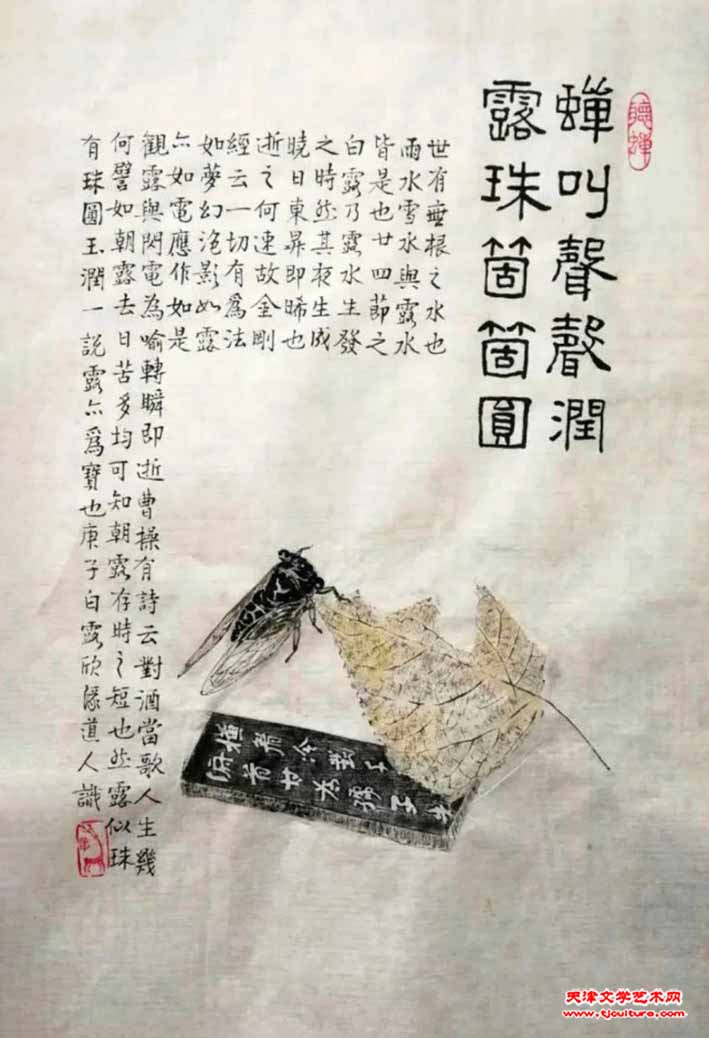 聽蟬
蟬叫聲聲潤
露珠箇箇圓
世有無根之水也
雨水雪水與露水
皆是也廿四節之
白露乃露水生發
之時然其夜生成
曉日東昇即晞也
逝之何速故金剛
經云一切有為法
如夢幻泡影如露
亦如電應作如是
觀露與閃電為喻轉瞬即逝曹操有詩云對酒當歌人生幾
何譬如朝露去日苦多均可知朝露存時之短也然露似珠
有珠圓玉潤一說露亦爲寶也庚子白露欣緣道人識
橫眉冷對千
俯首甘为孺子牛
天津文学艺术网
www.tjculture.com